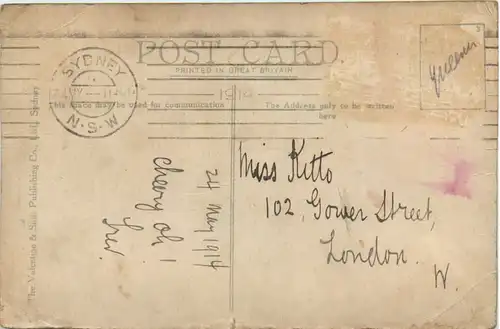 SYDNEY
N.S.W
POST CARD
PRINTED IN GREAT BRITAIN
This space may be used for communication
The Address only to be written
here
1914
The Valentine & Sons Publishing Co., Ltd., Sydney
24 May 1914
Cheery oh!
Miss Kitto
102, Gower Street,
London.
W.